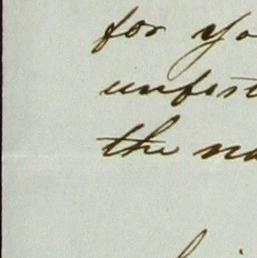 for yo
unfort
the na